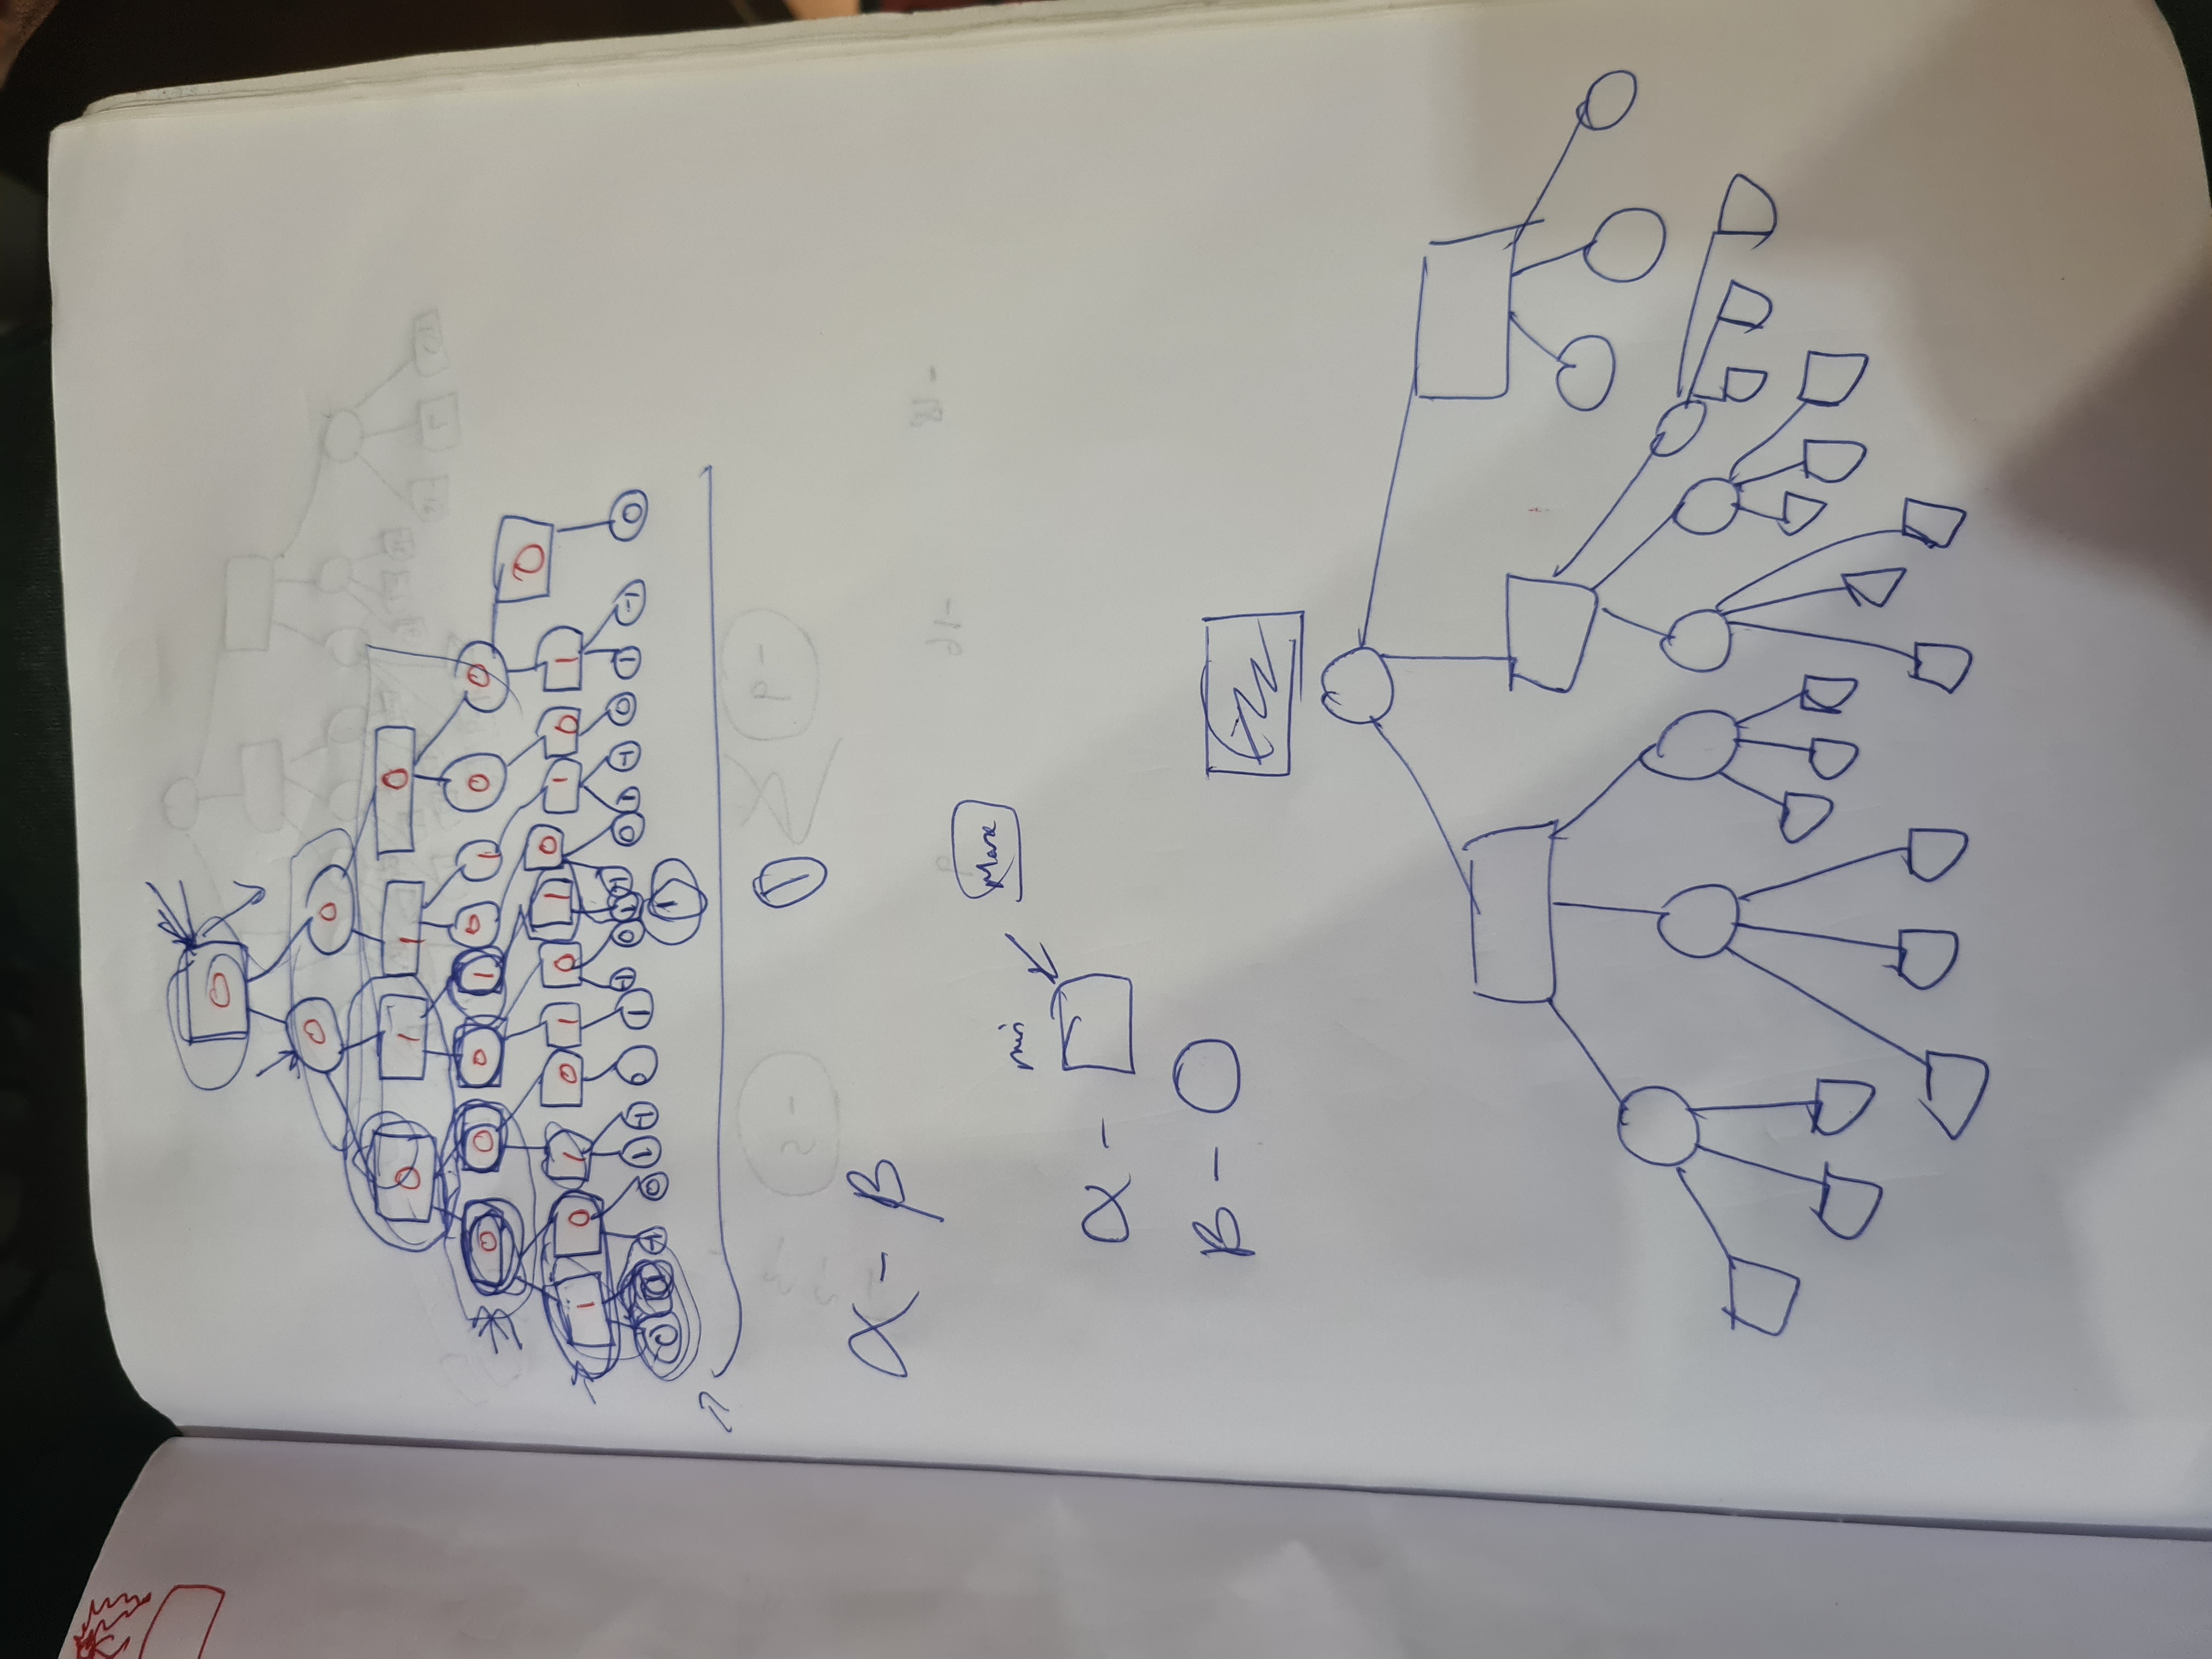 0
0 0
0 1 1 0
0 0 0 1 0 1 0 0
1 0 1 0 1 0 1 0 1 0 1 0
-1 0 1 -1 0 1 -1 0 0 1 -1 0 1 -1 0
1
1
α - β
Max
min
α -
β -